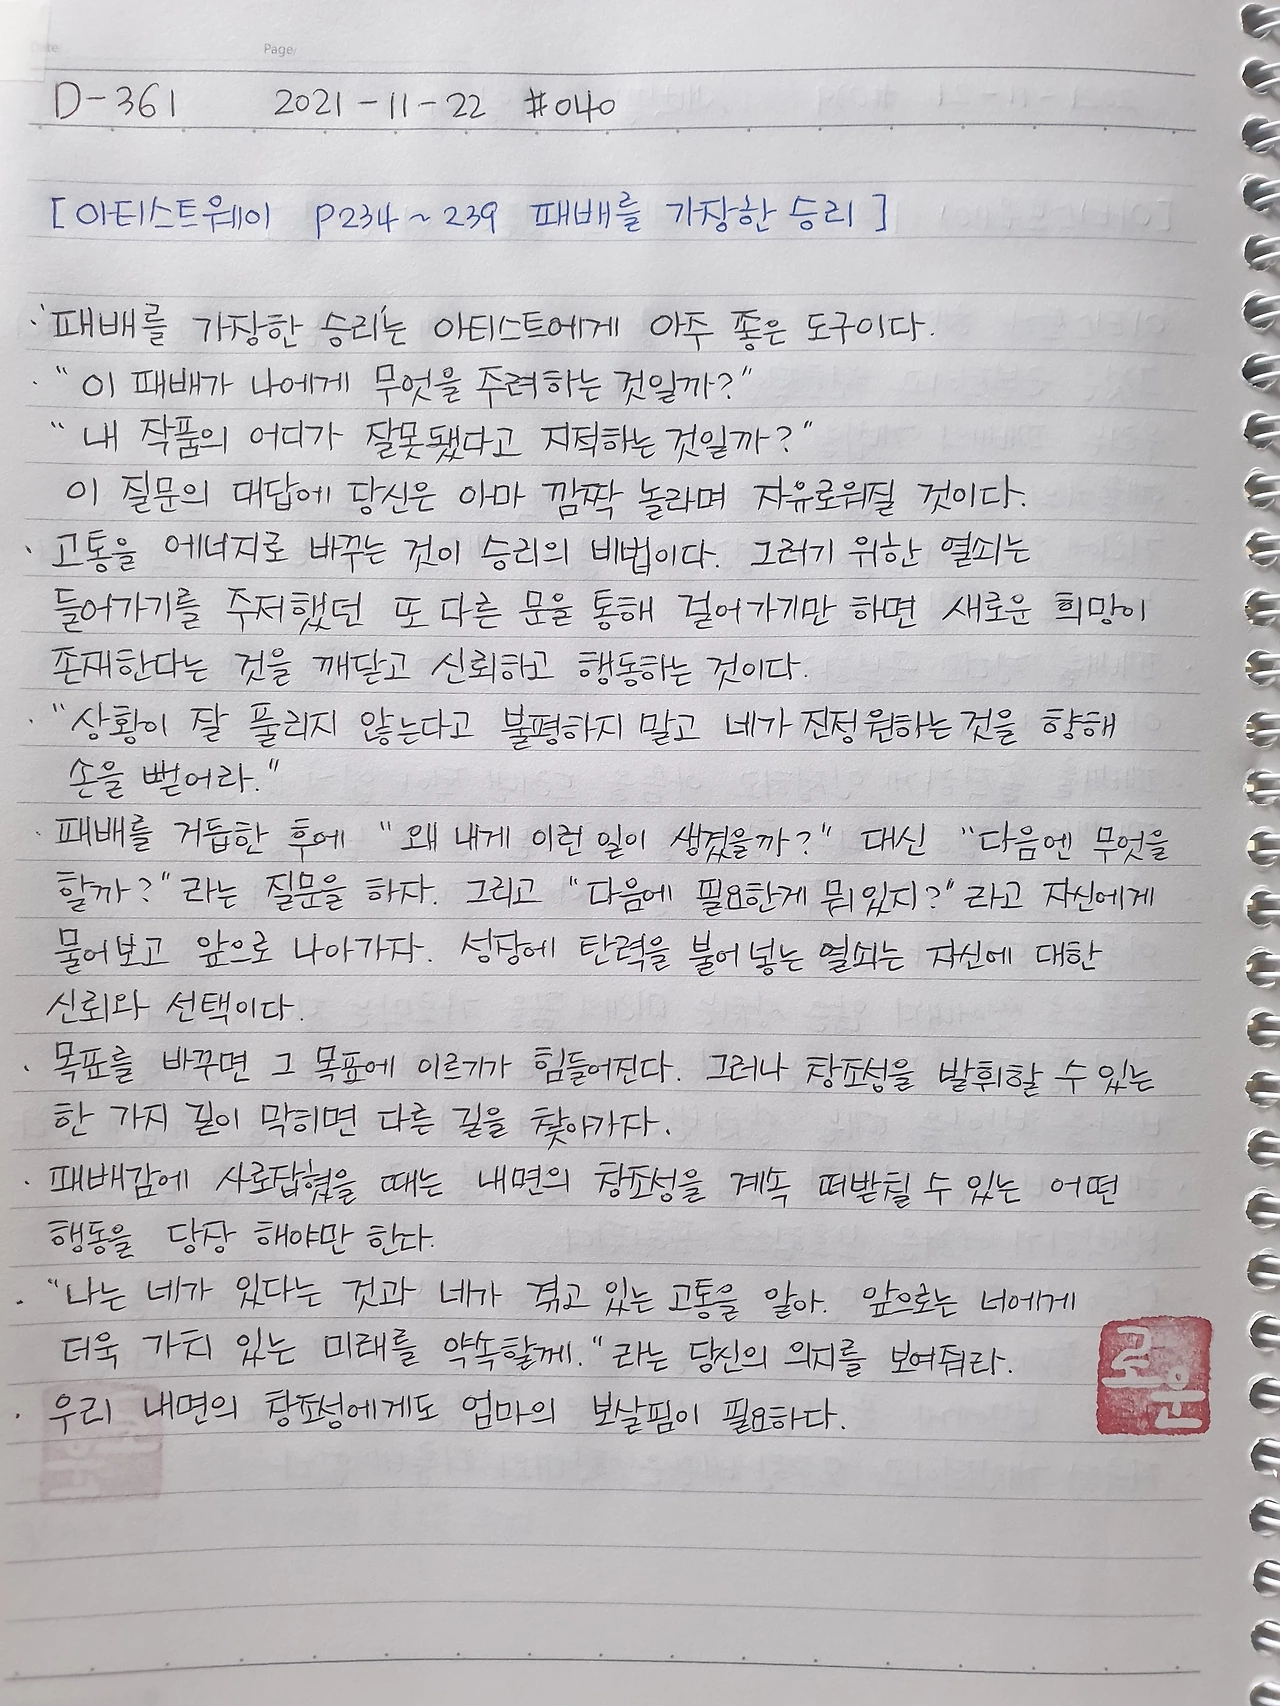 Date/
Page/
D-361 2021-11-22 #040
[아티스트웨이 P234~239 패배를 가장한 승리]
·'패배를 가장한 승리'는 아티스트에게 아주 좋은 도구이다.
·"이 패배가 나에게 무엇을 주려하는 것일까?"
"내 작품의 어디가 잘못됐다고 지적하는 것일까?"
이 질문의 대답에 당신은 아마 깜짝 놀라며 자유로워질 것이다.
·고통을 에너지로 바꾸는 것이 승리의 비법이다. 그러기 위한 열쇠는
들어가기를 주저했던 또 다른 문을 통해 걸어가기만 하면 새로운 희망이
존재한다는 것을 깨닫고 신뢰하고 행동하는 것이다.
·"상황이 잘 풀리지 않는다고 불평하지 말고 네가 진정 원하는 것을 향해
손을 뻗어라."
·패배를 거듭한 후에 "왜 내게 이런 일이 생겼을까?" 대신 "다음엔 무엇을
할까?"라는 질문을 하자. 그리고 "다음에 필요한게 뭐 있지?"라고 자신에게
물어보고 앞으로 나아가자. 성장에 탄력을 불어 넣는 열쇠는 자신에 대한
신뢰와 선택이다.
·목표를 바꾸면 그 목표에 이르기가 힘들어진다. 그러나 창조성을 발휘할 수 있는
한 가지 길이 막히면 다른 길을 찾아가자.
·패배감에 사로잡혔을 때는 내면의 창조성을 계속 떠받칠 수 있는 어떤
행동을 당장 해야만 한다.
·"나는 네가 있다는 것과 네가 겪고 있는 고통을 알아. 앞으로는 너에게
더욱 가치 있는 미래를 약속할께."라는 당신의 의지를 보여줘라.
·우리 내면의 창조성에게도 엄마의 보살핌이 필요하다.
로운